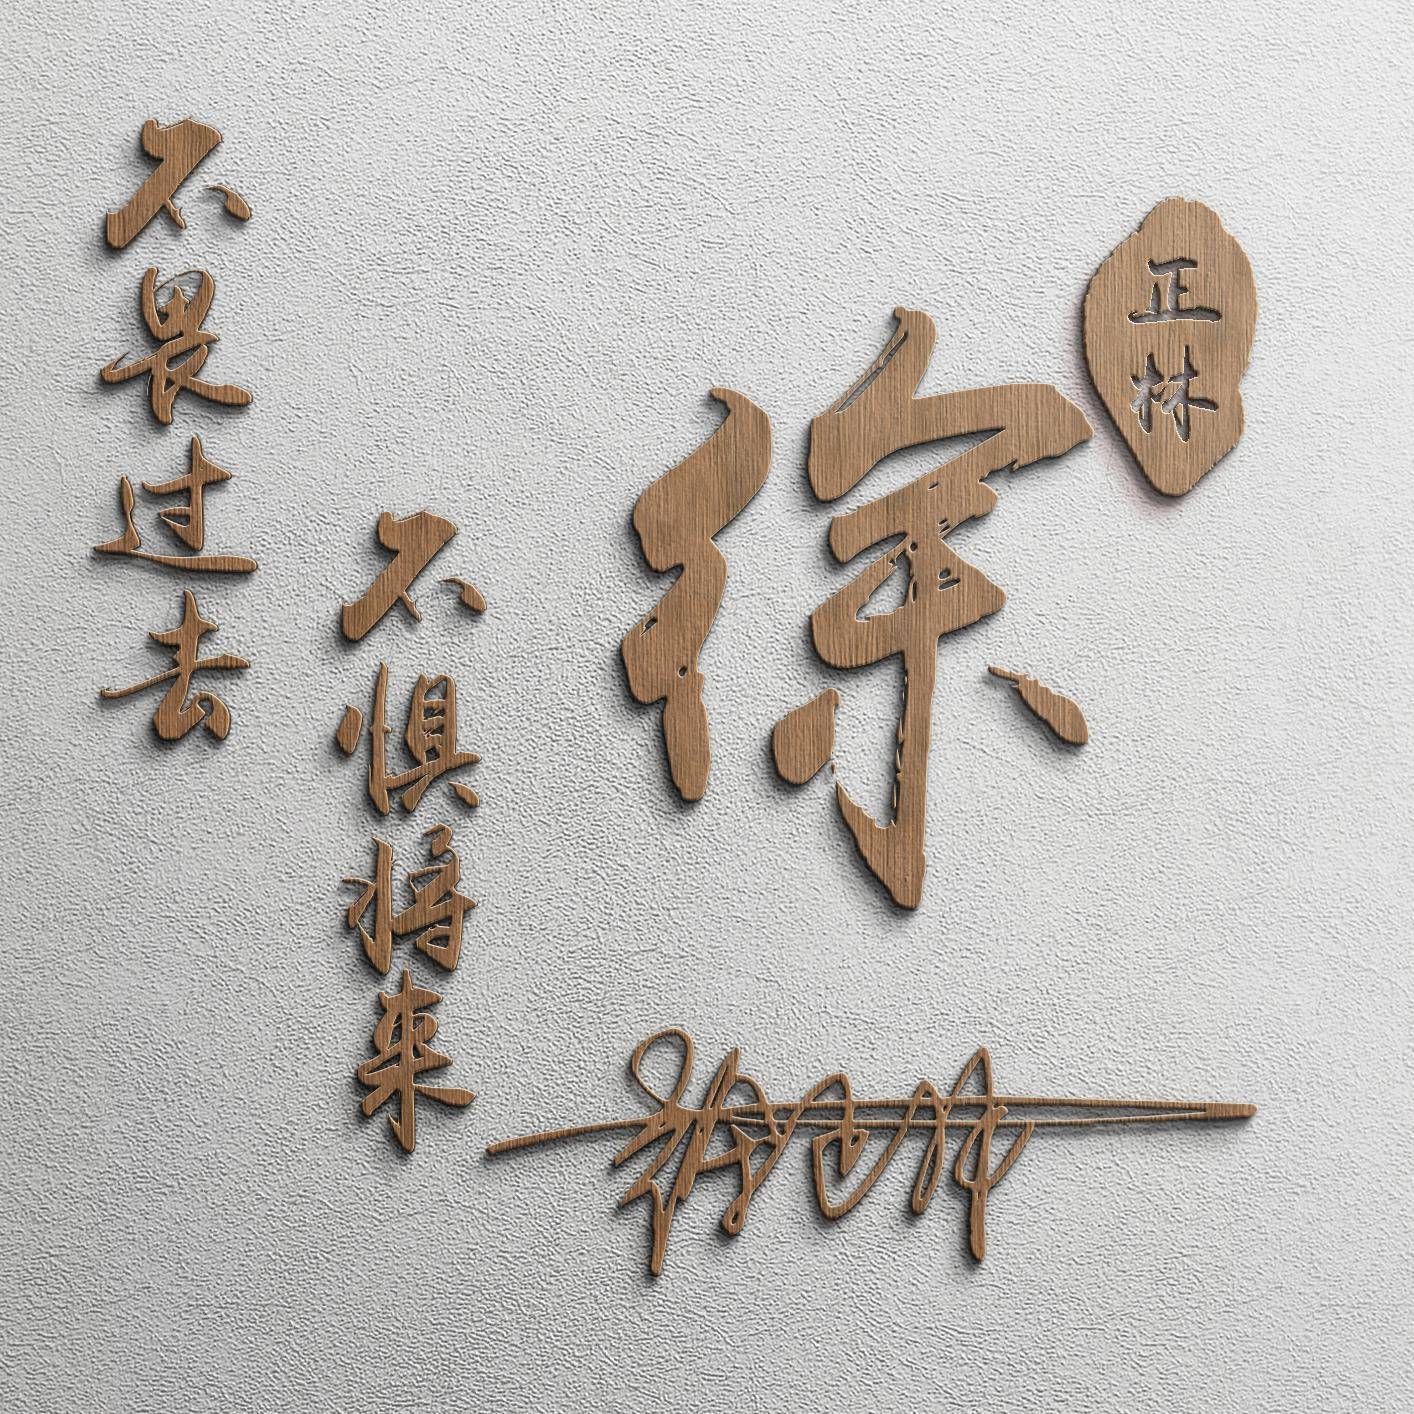 不畏过去
不惧将来
徐
正林